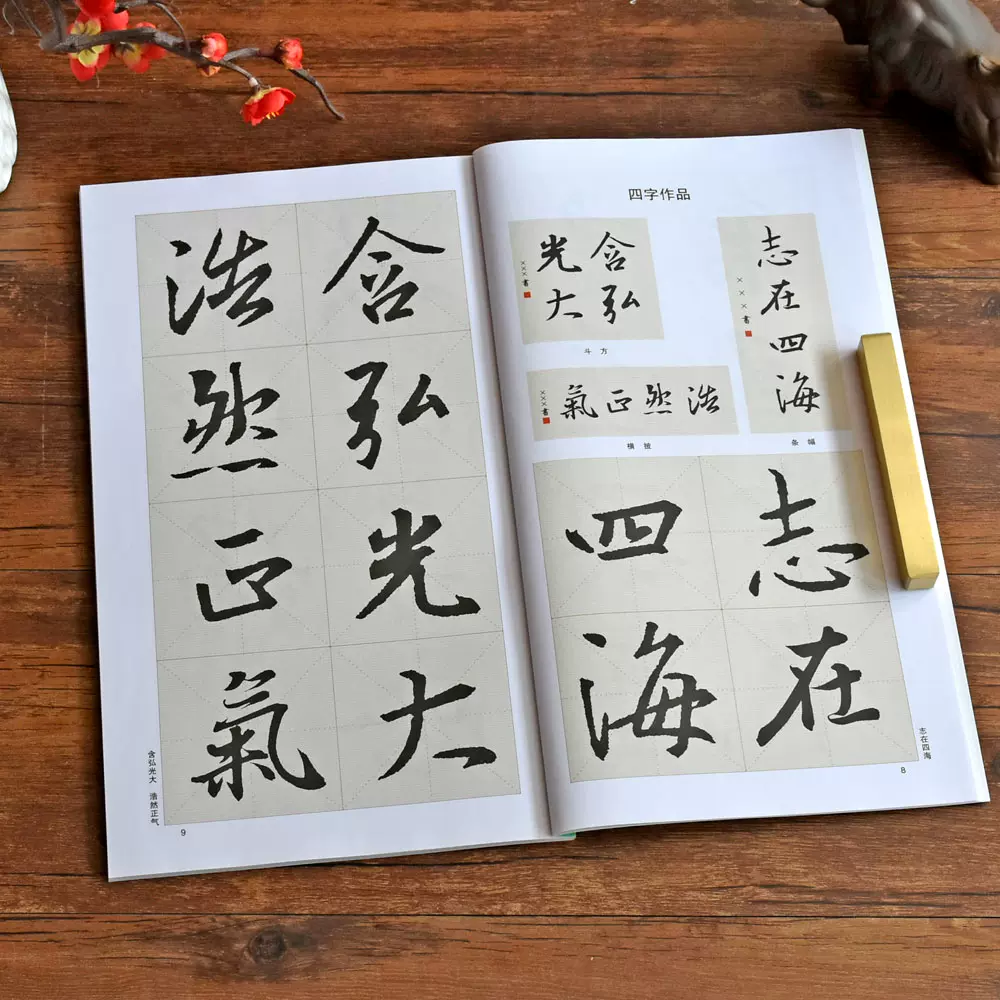 四字作品
含弘
光大
×××書
斗方
浩然正氣
×××書
横披
志在四海
×××書
条幅
志在
四海
志在四海
8
含弘光大
浩然正氣
含弘光大 浩然正气
9